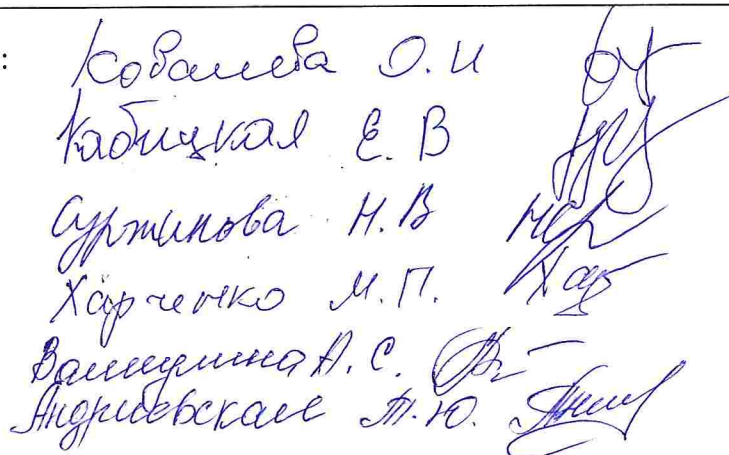 :
Ковалева О.И
Кабицкая Е.В
Суржикова Н.В
Харченко М.П.
А.С.
Андриевская Т.Ю.